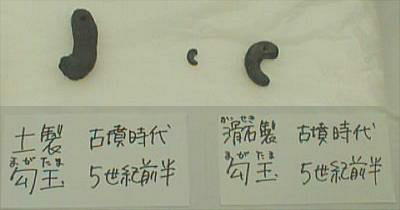 土製 古墳時代
まがたま
勾玉 5世紀前半
かっせき
滑石製 古墳時代
まがたま
勾玉 5世紀前半